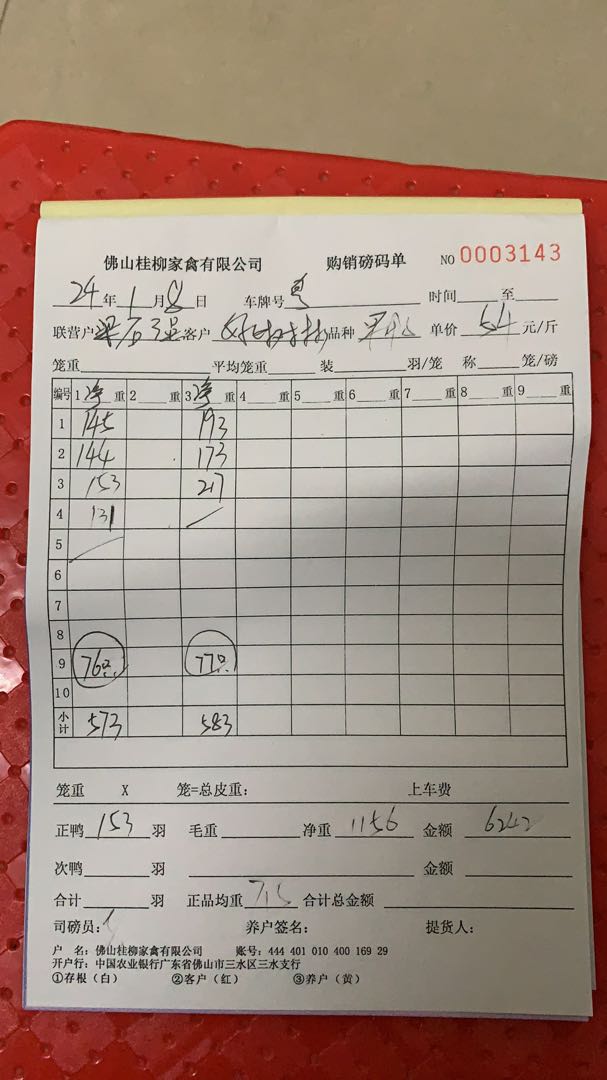 佛山桂柳家禽有限公司 购销磅码单 NO 0003143
24年1月8日 车牌号 粤 时间 至
联营户 客户 品种 单价 5.4 元/斤
笼重 平均笼重 装 羽/笼 称 笼/磅
编号 1 净 重 2 重 3 净 重 4 重 5 重 6 重 7 重 8 重 9 重
1 145 193
2 144 173
3 153 217
4 131
5
6
7
8
9 76只 77只
10
小计 573 583
笼重 X 笼=总皮重: 上车费
正鸭 153 羽 毛重 净重 1156 金额 6242
次鸭 羽 金额
合计 羽 正品均重 合计总金额
司磅员: 养户签名: 提货人:
户 名: 佛山桂柳家禽有限公司 账号: 444 401 010 400 169 29
开户行: 中国农业银行广东省佛山市三水区三水支行
①存根(白) ②客户(红) ③养户(黄)